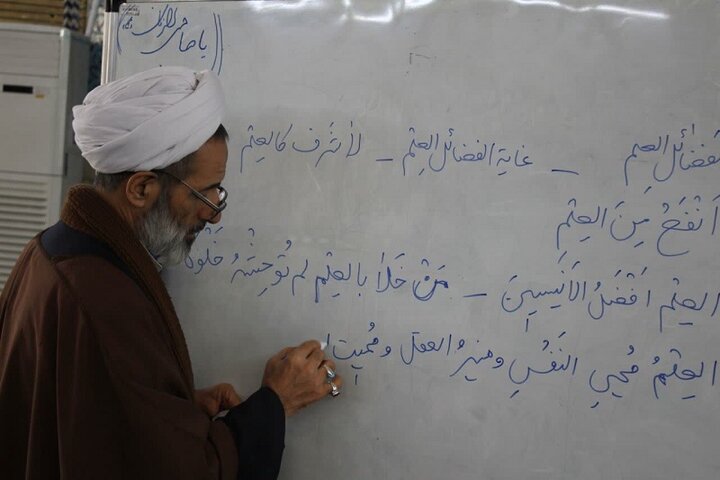 یا صاحب الزمان
الفضائل العِلم – غایة الفضائل العِلم – لا شَرَفَ کالعِلم
اَنْفَعُ مِنَ العِلْمِ
العِلم اَفْضَلُ الاَنیسینِ – مَنْ خَلا بالعِلم لم تُوحِشْهُ خَلْوَة
العِلْمُ مُحیِ النَفْسِ و منیرُ العقل و مُمیتُ ا